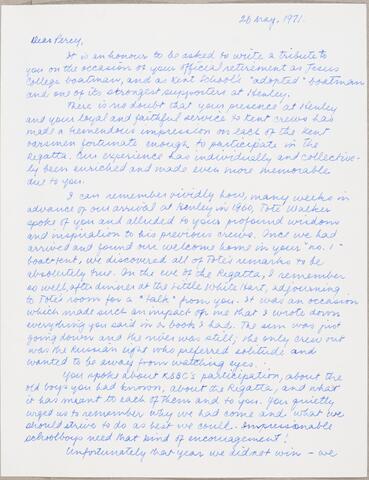 26 May, 1971.
Dear Percy,
It is an honour to be asked to write a tribute to
you on the occasion of your official retirement as Jesus
College boatman, and as Kent School's "adopted" boatman
and one of its strongest supporters at Henley.
There is no doubt that your presence at Henley
and your loyal and faithful service to Kent crews has
made a tremendous impression on each of the Kent
oarsmen fortunate enough to participate in the
regatta. Our experience has individually and collective-
ly been enriched and made even more memorable
due to you.
I can remember vividly how, many weeks in
advance of our arrival at Henley in 1960, Tote Walker
spoke of you and alluded to your profound wisdoms
and inspiration to his previous crews. Once we had
arrived and found our welcome home in your "no. 1"
boat-tent, we discovered all of Tote's remarks to be
absolutely true. On the eve of the Regatta, I remember
so well, after dinner at the Little White Hart, adjourning
to Tote's room for a "talk" from you. It was an occasion
which made such an impact on me that I wrote down
everything you said in a book I had. The sun was just
going down and the river was still; the only crew out
was the Russian eight who preferred solitude and
wanted to be away from watching eyes.
You spoke about KSBC's participation, about the
old boys you had known, about the Regatta, and what
it has meant to each of them and to you. You quietly
urged us to remember why we had come and what we
should strive to do as best we could. Impressionable
schoolboys need that kind of encouragement!
Unfortunately that year we did not win – we